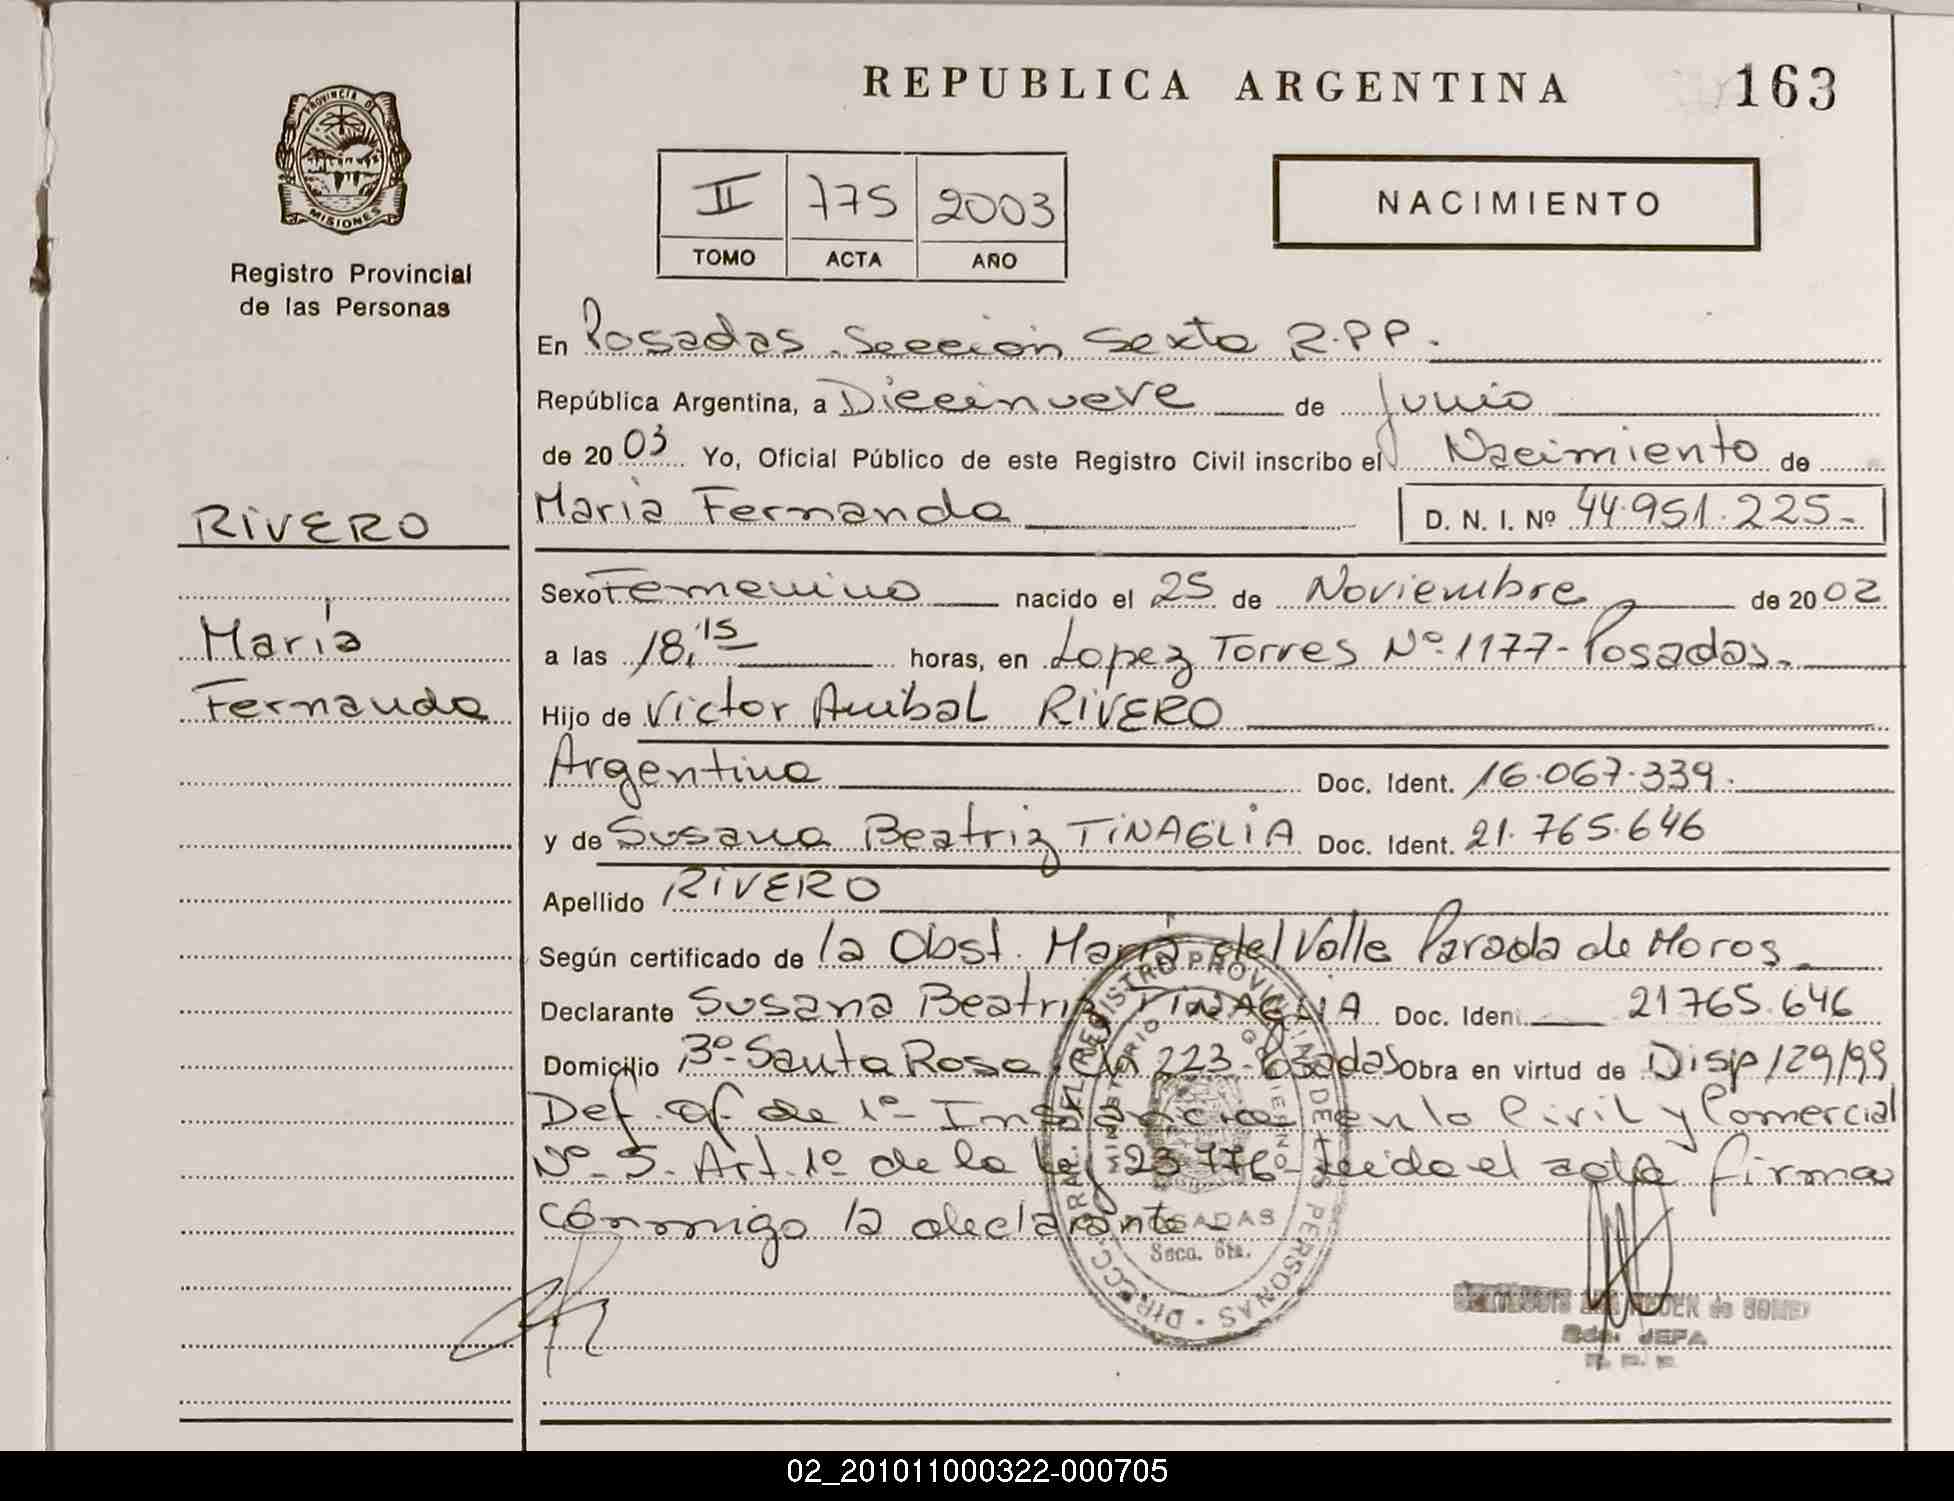 PROVINCIA DE
MISIONES
Registro Provincial
de las Personas
REPUBLICA ARGENTINA 163
II 775 2003
TOMO ACTA AÑO
NACIMIENTO
En Posadas. Sección Sexta R.P.P.
República Argentina, a Diecinueve de Junio
de 2003 Yo, Oficial Público de este Registro Civil inscribo el Nacimiento de
María Fernanda D. N. I. Nº 44.951.225-
RIVERO
María
Fernanda
Sexo Femenino nacido el 25 de Noviembre de 2002
a las 18,15 horas, en Lopez Torres Nº 1177- Posadas.
Hijo de Victor Anibal RIVERO
Argentina Doc. Ident. 16.067.339.
y de Susana Beatriz TINAGLIA Doc. Ident. 21.765.646
Apellido RIVERO
Según certificado de la Obst. María del Valle Parada de Moros
Declarante Susana Beatriz TINAGLIA Doc. Iden. 21765.646
Domicilio Bº- Santa Rosa 223- Posadas Obra en virtud de Disp 129/99
Def. Of. de 1º- Instancia en lo Civil y Comercial
Nº- 5- Art. 1º de la Ley 23776- Leida el acta firma
conmigo la declarante
DIRECC. GRAL. DEL REGISTRO PROVINCIAL DE LAS PERSONAS
MINISTERIO GOBIERNO
POSADAS
Secc. 6ta.
JEFA
02_201011000322-000705